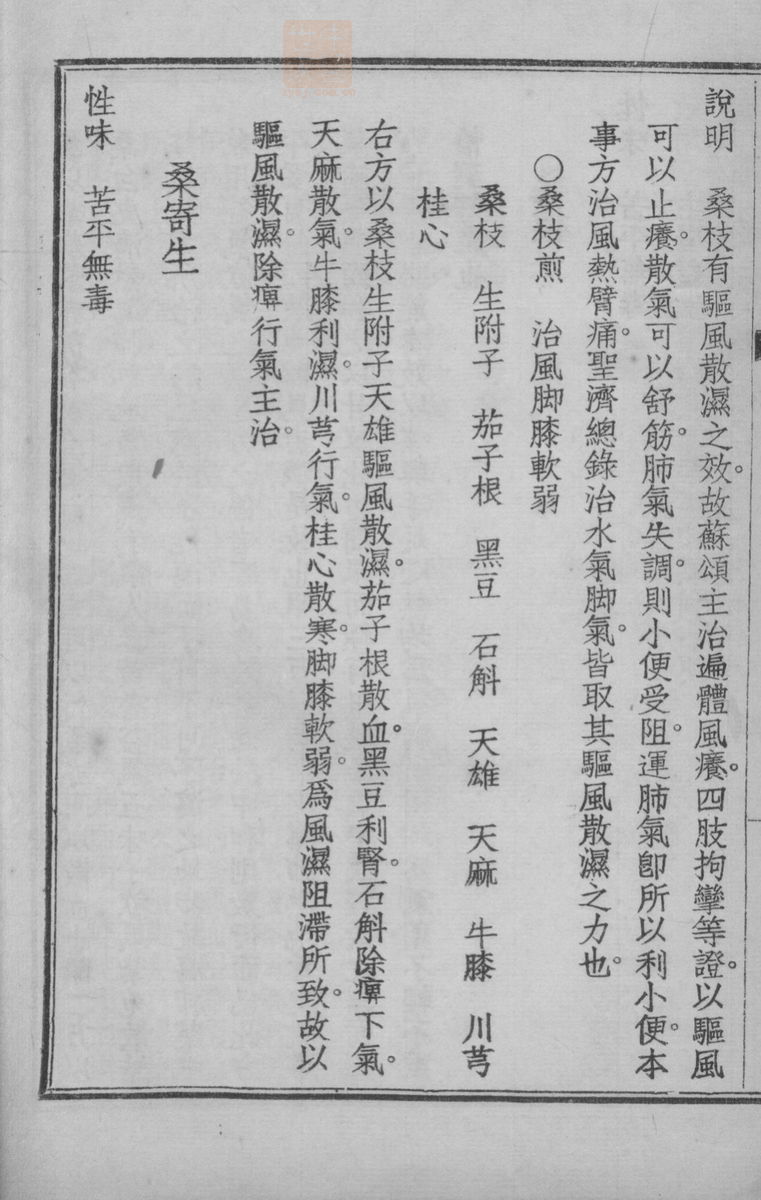 說明　桑枝有驅風散濕之效。故蘇頌主治遍體風癢。四肢拘攣等證。以驅風
可以止癢。散氣可以舒筋。肺氣失調。則小便受阻。運肺氣卽所以利小便。本
事方治風熱臂痛。聖濟總錄治水氣脚氣。皆取其驅風散濕之力也。
〇桑枝煎　治風脚膝軟弱
桑枝　生附子　茄子根　黑豆　石斛　天雄　天麻　牛膝　川芎
桂心
右方以桑枝生附子天雄驅風散濕。茄子根散血。黑豆利腎。石斛除痹下氣。
天麻散氣。牛膝利濕。川芎行氣。桂心散寒。脚膝軟弱。爲風濕阻滯所致。故以
驅風散濕。除痹行氣主治。
桑寄生
性味　苦平無毒